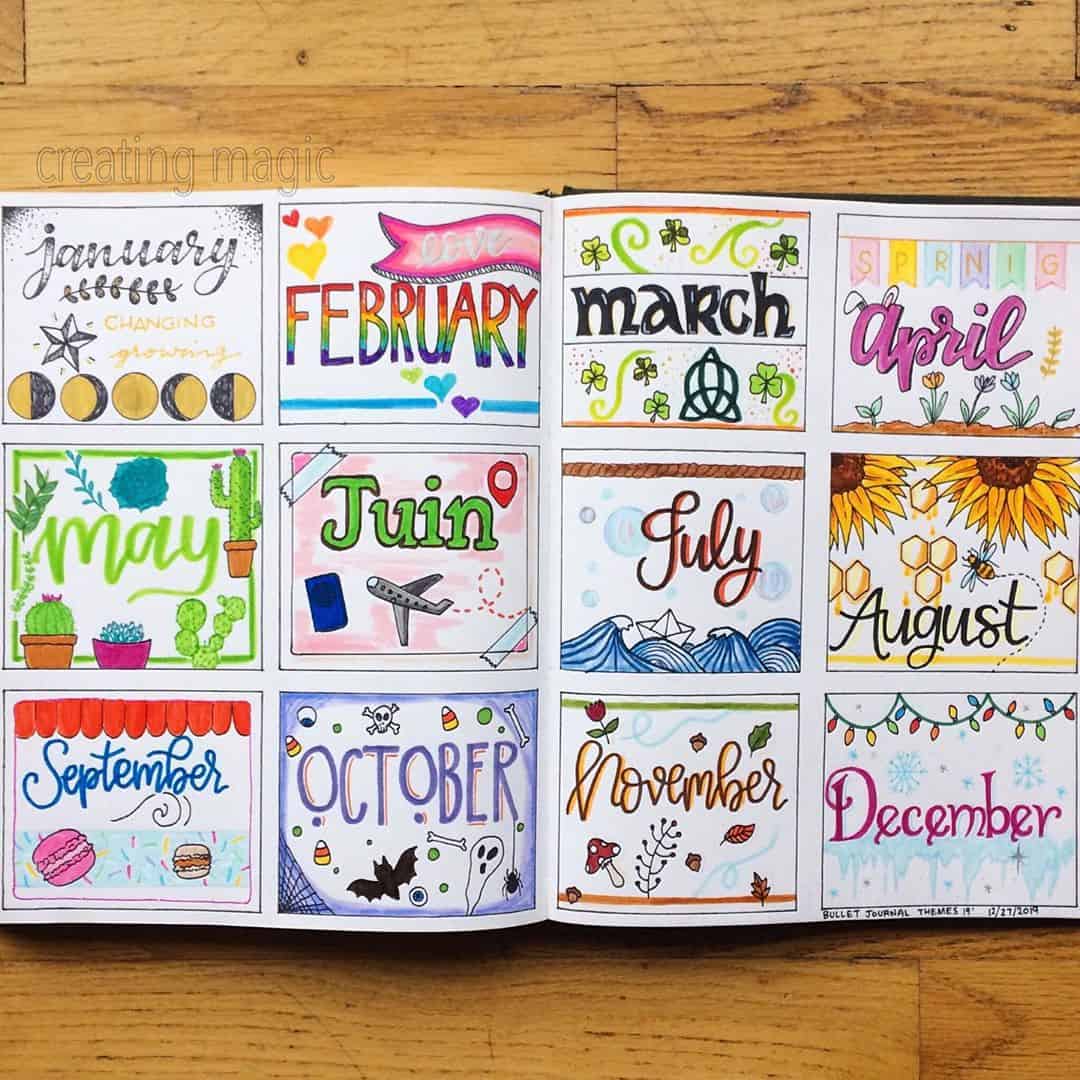 creating magic
january
CHANGING
growing
love
FEBRUARY
march
SPRNIG
april
may
Juin
July
August
September
OCTOBER
November
December
BULLET JOURNAL THEMES 19' 12/27/2019